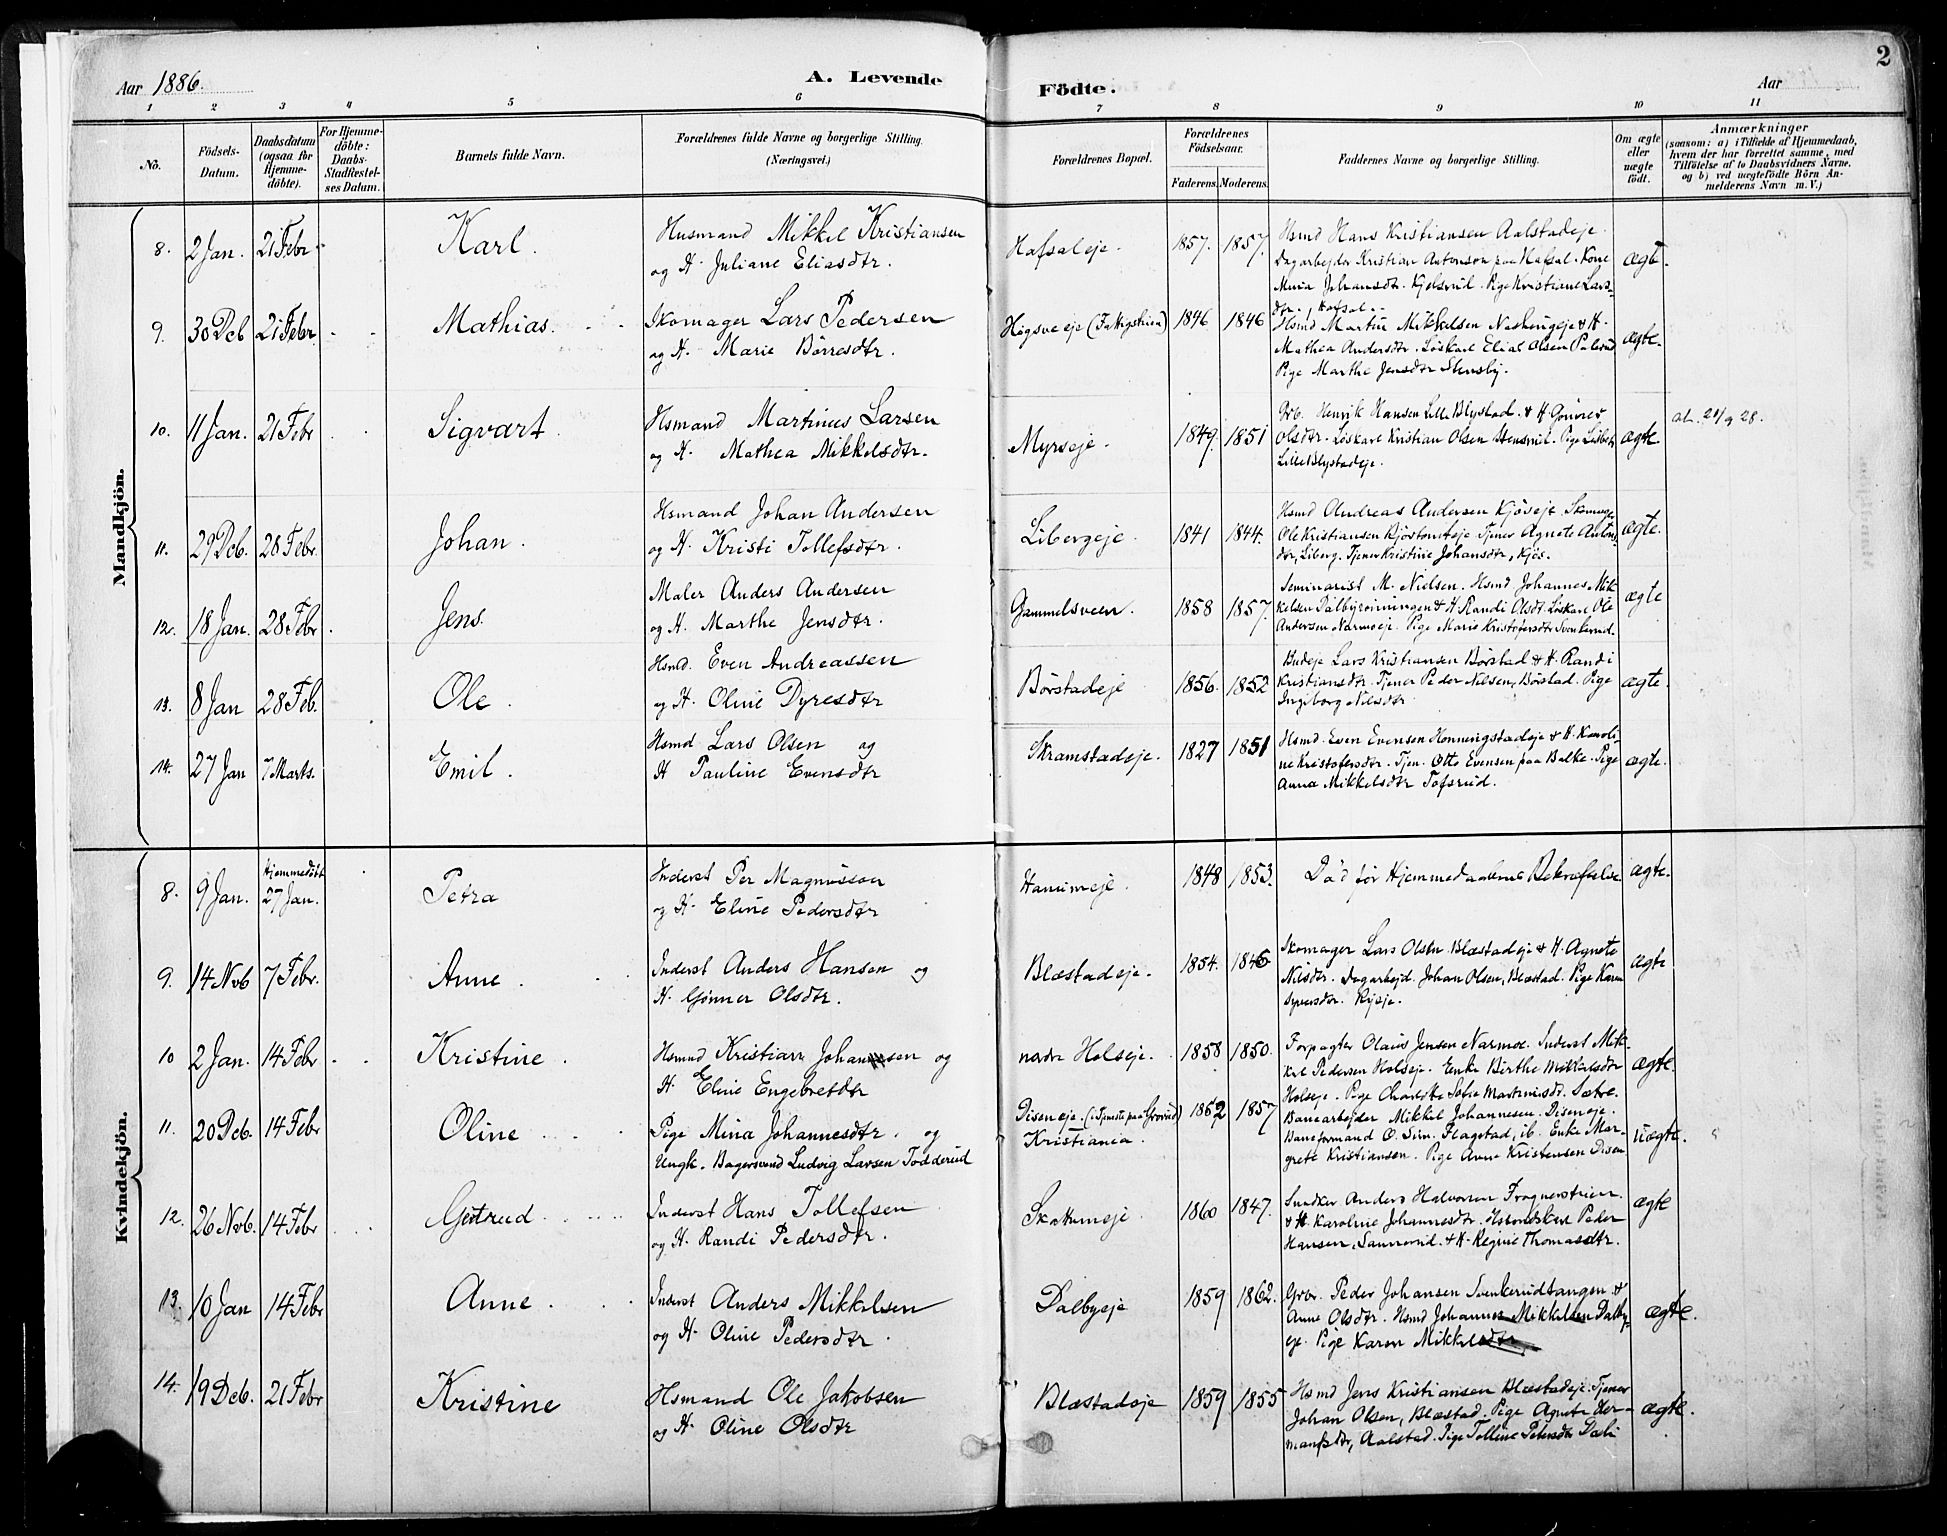 2
Aar 1886.
A. Levende
Födte.
Aar
1 2 3 4 5 6 7 8 9 10 11
No.
Födsels-Datum.
Daabsdatum (ogsaa for Hjemmedöbte).
For Hjemmedöbte: Daabs-Stadfæstelses Datum.
Barnets fulde Navn.
Forældrenes fulde Navne og borgerlige Stilling.
(Næringsvei.)
Forældrenes Bopæl.
Forældrenes Födselsaar.
Faderens. Moderens.
Faddernes Navne og borgerlige Stilling.
Om ægte eller uægte födt.
Anmærkninger
(saasom: a) i Tilfælde af Hjemmedaab, hvem der har forrettet samme, med Tilföielse af to Daabsvidners Navne. og b) ved uægtefödte Börn Anmelderens Navn m. V.)
Mandkjön.
8. 2 Jan. 21 Febr Karl. Husmand Mikkel Kristiansen
og H. Juliane Eliasdtr.
Hafsaleje. 1857. 1857. Hsmd Hans Kristiansen Aalstadeje.
Dagarbejder Kristian Antonsen paa Hafsal. Kone
Maria Johansdtr. Pige Kristiane Lars-
dtr. Hafsal.
ægt.
9. 30 Dcb 21 Febr. Mathias. Skomager Lars Pedersen
og H. Marie Börresdtr.
(Fattigstuen) 1846 1846 Hsmd Martin Mikkelsen & H.
Mathea Andersdtr. Löskarl Elias Olsen
Pige Marthe Jensdtr Stensby.
ægte.
10. 11 Jan. 21 Febr Sigvart. Hsmand Martinus Larsen
og H. Mathea Mikkelsdtr.
Myrseje. 1849. 1851 Henrik Hansen Lille Blystad. & H.
Olsdtr. Löskarl Kristian Olsen Pige
Lille Blystadeje.
ægte.
at. 21/9 28.
11. 29 Dcb. 28 Febr. Johan. Hsmand Johan Andersen
og H. Kristi Tollefsdtr.
Libergeje. 1841 1844. Hsmd Andreas Andersen Kjöseje. Skomager
Ole Kristiansen Tjener Agnete Antons-
dtr, Liberg. Tjener Kristine Johansdtr, Kjös.
ægte.
12. 18 Jan. 28 Febr. Jens. Maler Anders Andersen
og H. Marthe Jensdtr.
Gammelsveen. 1858 1857. Seminarist M. Nielsen. Hsmd Johannes Mik-
kelsen & H. Randi Olsdt. Löskarl Ole
Andersen Narmoeje. Pige Marie Kristofersdtr Svenkerud.
ægte
13. 8 Jan 28 Feb. Ole. Hsmd. Even Andreassen
og H. Oline Dyresdtr
Börstadeje 1856. 1852 Lars Kristiansen Börstad & H. Randi
Kristiansdtr. Tjener Peder Nilsen, Börstad. Pige
Ingeborg Nilsdtr
ægte.
14. 27 Jan 7 Marts. Emil. Hsmd Lars Olsen og
H Pauline Evensdtr
Skramstadeje. 1827 1851 Hsmd. Even Evensen Honningstadeje & H. Karoli-
ne Kristofersdtr. Tjen. Otto Evensen paa Balke. Pige
Anna Mikkelsdtr Tofsrud.
ægte.
Kvindekjön.
8. 9 Jan. Hjemmedöbt 27 Jan. Petra Inderst Per Magnusson
og H. Eline Pedersdtr
1848 1853. Död för Hjemmedaabens Bekræftelse. ægte.
9. 14 Nvb 7 Febr. Anne. Inderst Anders Hansen og
H. Gönner Olsdtr.
Blæstadeje. 1854. Skomager Lars Olsen Blæstadeje & H. Agnete
Nilsdtr. Dagarbejd. Johan Olsen, Blæstad. Pige Karen
Syversdtr.
ægte
10 2 Jan. 14 Febr Kristine. Hsmnd Kristian Johansen og
H. Eline Engebretdtr
nedre Holseje. 1858 1850. Forpagter Olaus Jensen Narmo. Inderst Mik-
kel Pedersen Holseje. Enke Birthe Mikkelsdtr
Holseje. Pige Charlotte Sofie Martinisdtr. Sætre.
ægte.
11. 20 Dcb. 14 Febr Oline Pige Mina Johannesdtr. og
Ungk. Bagersvend Ludvig Larsen Todderud
Diseneje. (i Tjeneste paa Grorud)
Kristiania.
1862 1857 Banearbejder Mikkel Johannesen. Diseneje.
Baneformand O. Sim. Flagstad, ib. Enke Mar-
grete Kristiansen. Pige Anne Kristensen Disen
uægte.
12. 26 Nvb. 14 Febr Gjetrud Inderst Hans Tollefsen
og H. Randi Pedersdtr.
1860 1847. Snedker Anders Halvorsen
& H. Karoline Johannesdtr. Peder
Hansen, & H. Regine Thomasdtr.
ægte
13. 10 Jan 14 Febr Anne. Inderst Anders Mikkelsen
og H. Oline Pedersdtr.
Dalbyeje 1859 1862. Grbr. Peder Johansen Svenkerudtangen &
Anne Olsdtr. Hsmd Johannes Mikkelsen Dalby-
eje. Pige Karen Mikkelsdtr
ægte.
14. 19 Dcb. 21 Febr Kristine Hsmand Ole Jakobsen
og H. Oline Olsdtr
Blæstadeje 1859 1855 Hsmd Jens Kristiansen Blæstadeje. Tjener
Johan Olsen, Blæstad. Pige Agnete Her-
mansdtr, Aalstad. Pige Tolline Petersdtr
ægte.